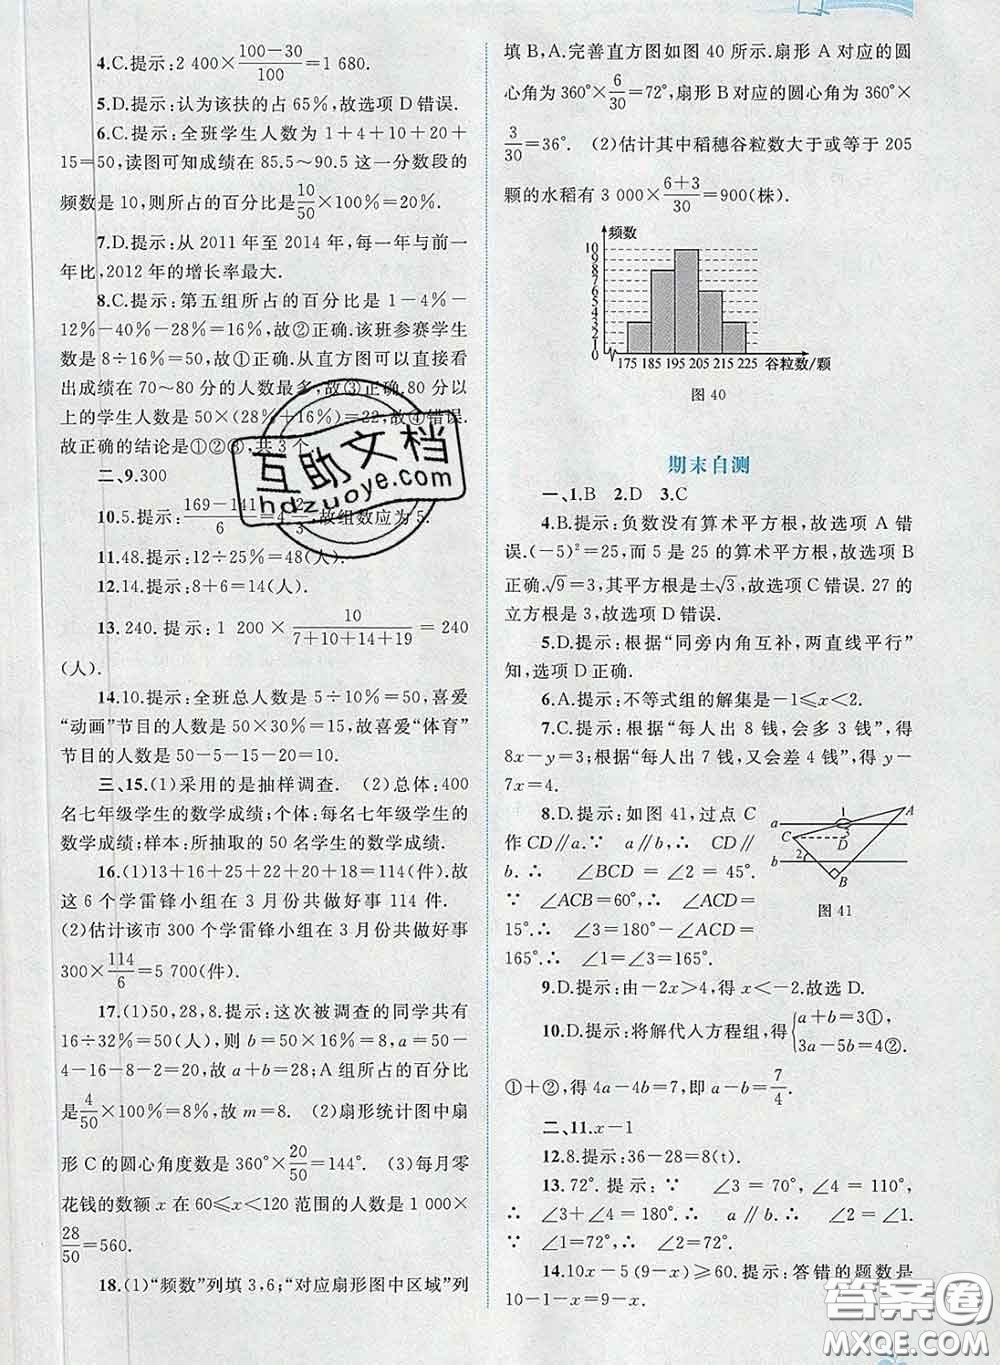 4.C.提示:2 400×(100-30)/100=1 680.
5.D.提示:认为该扶的占 65%,故选项 D 错误.
6.C.提示:全班学生人数为 1+4+10+20
+15=50,读图可知成绩在 85.5~90.5 这一分数段的
频数是 10,则所占的百分比是10/50×100%=20%.
7.D.提示:从 2011 年至 2014 年,每一年与前一
年比,2012 年的增长率最大.
8.C.提示:第五组所占的百分比是 1-4%-
12%-40%-28%=16%,故②正确.该班参赛学生
数是 8÷16%=50,故①正确.从直方图可以直接看
出成绩在 70~80 分的人数最多,故③正确.80 分以
上的学生人数是 50×(28%+16%)=22,故④错误.
故正确的结论是①②③,共 3 个.
二、9.300
10.5.提示:(169-141)/6=4 2/3,故组数应为 5.
11.48.提示:12÷25%=48(人).
12.14.提示:8+6=14(人).
13.240.提示:1 200×10/(7+10+14+19)=240
(人).
14.10.提示:全班总人数是 5÷10%=50,喜爱
“动画”节目的人数是 50×30%=15,故喜爱“体育”
节目的人数是 50-5-15-20=10.
三、15.(1)采用的是抽样调查. (2)总体:400
名七年级学生的数学成绩;个体:每名七年级学生的
数学成绩;样本:所抽取的 50 名学生的数学成绩.
16.(1)13+16+25+22+20+18=114(件).故
这 6 个学雷锋小组在 3 月份共做好事 114 件.
(2)估计该市 300 个学雷锋小组在 3 月份共做好事
300×114/6=5 700(件).
17.(1)50,28,8.提示:这次被调查的同学共有
16÷32%=50(人),则 b=50×16%=8,a=50-
4-16-8-2=20.故 a+b=28;A组所占的百分比
是4/50×100%=8%,故 m=8. (2)扇形统计图中扇
形 C 的圆心角度数是 360°×20/50=144°. (3)每月零
花钱的数额 x 在 60≤x<120 范围的人数是 1 000×
28/50=560.
18.(1)“频数”列填 3,6;“对应扇形图中区域”列
填 B,A.完善直方图如图 40 所示.扇形 A 对应的圆
心角为 360°×6/30=72°,扇形 B 对应的圆心角为 360°×
3/30=36°. (2)估计其中稻穗谷粒数大于或等于 205
颗的水稻有 3 000×(6+3)/30=900(株).
频数
10
9
8
7
6
5
4
3
2
1
0
175 185 195 205 215 225 谷粒数/颗
图 40
期末自测
一、1.B 2.D 3.C
4.B.提示:负数没有算术平方根,故选项 A 错
误.(-5)²=25,而 5 是 25 的算术平方根,故选项 B
正确.√9=3,其平方根是±√3,故选项 C 错误.27 的
立方根是 3,故选项 D 错误.
5.D.提示:根据“同旁内角互补,两直线平行”
知,选项 D 正确.
6.A.提示:不等式组的解集是-1≤x<2.
7.C.提示:根据“每人出 8 钱,会多 3 钱”,得
8x-y=3;根据“每人出 7 钱,又会差 4 钱”,得 y-
7x=4.
8.D.提示:如图 41,过点 C
作 CD∥a.∵ a∥b,∴ CD∥
b.∴ ∠BCD=∠2=45°.
∵ ∠ACB=60°,∴ ∠ACD=
15°.∴ ∠3=180°-∠ACD=
165°.∴ ∠1=∠3=165°.
a
b
C
D
A
B
1
2
3
图 41
9.D.提示:由-2x>4,得 x<-2.故选 D.
10.D.提示:将解代人方程组,得{a+b=3①,
3a-5b=4②.
①+②,得 4a-4b=7,即 a-b=7/4.
二、11.x-1
12.8.提示:36-28=8(t).
13.72°.提示:∵ ∠3=70°,∠4=110°,
∴ ∠3+∠4=180°.∴ a∥b.∴ ∠2=∠1.
∵ ∠1=72°,∴ ∠2=72°.
14.10x-5(9-x)≥60.提示:答错的题数是
10-1-x=9-x.
互助文档
hdzuoye.com
答案圈
MXQE.COM